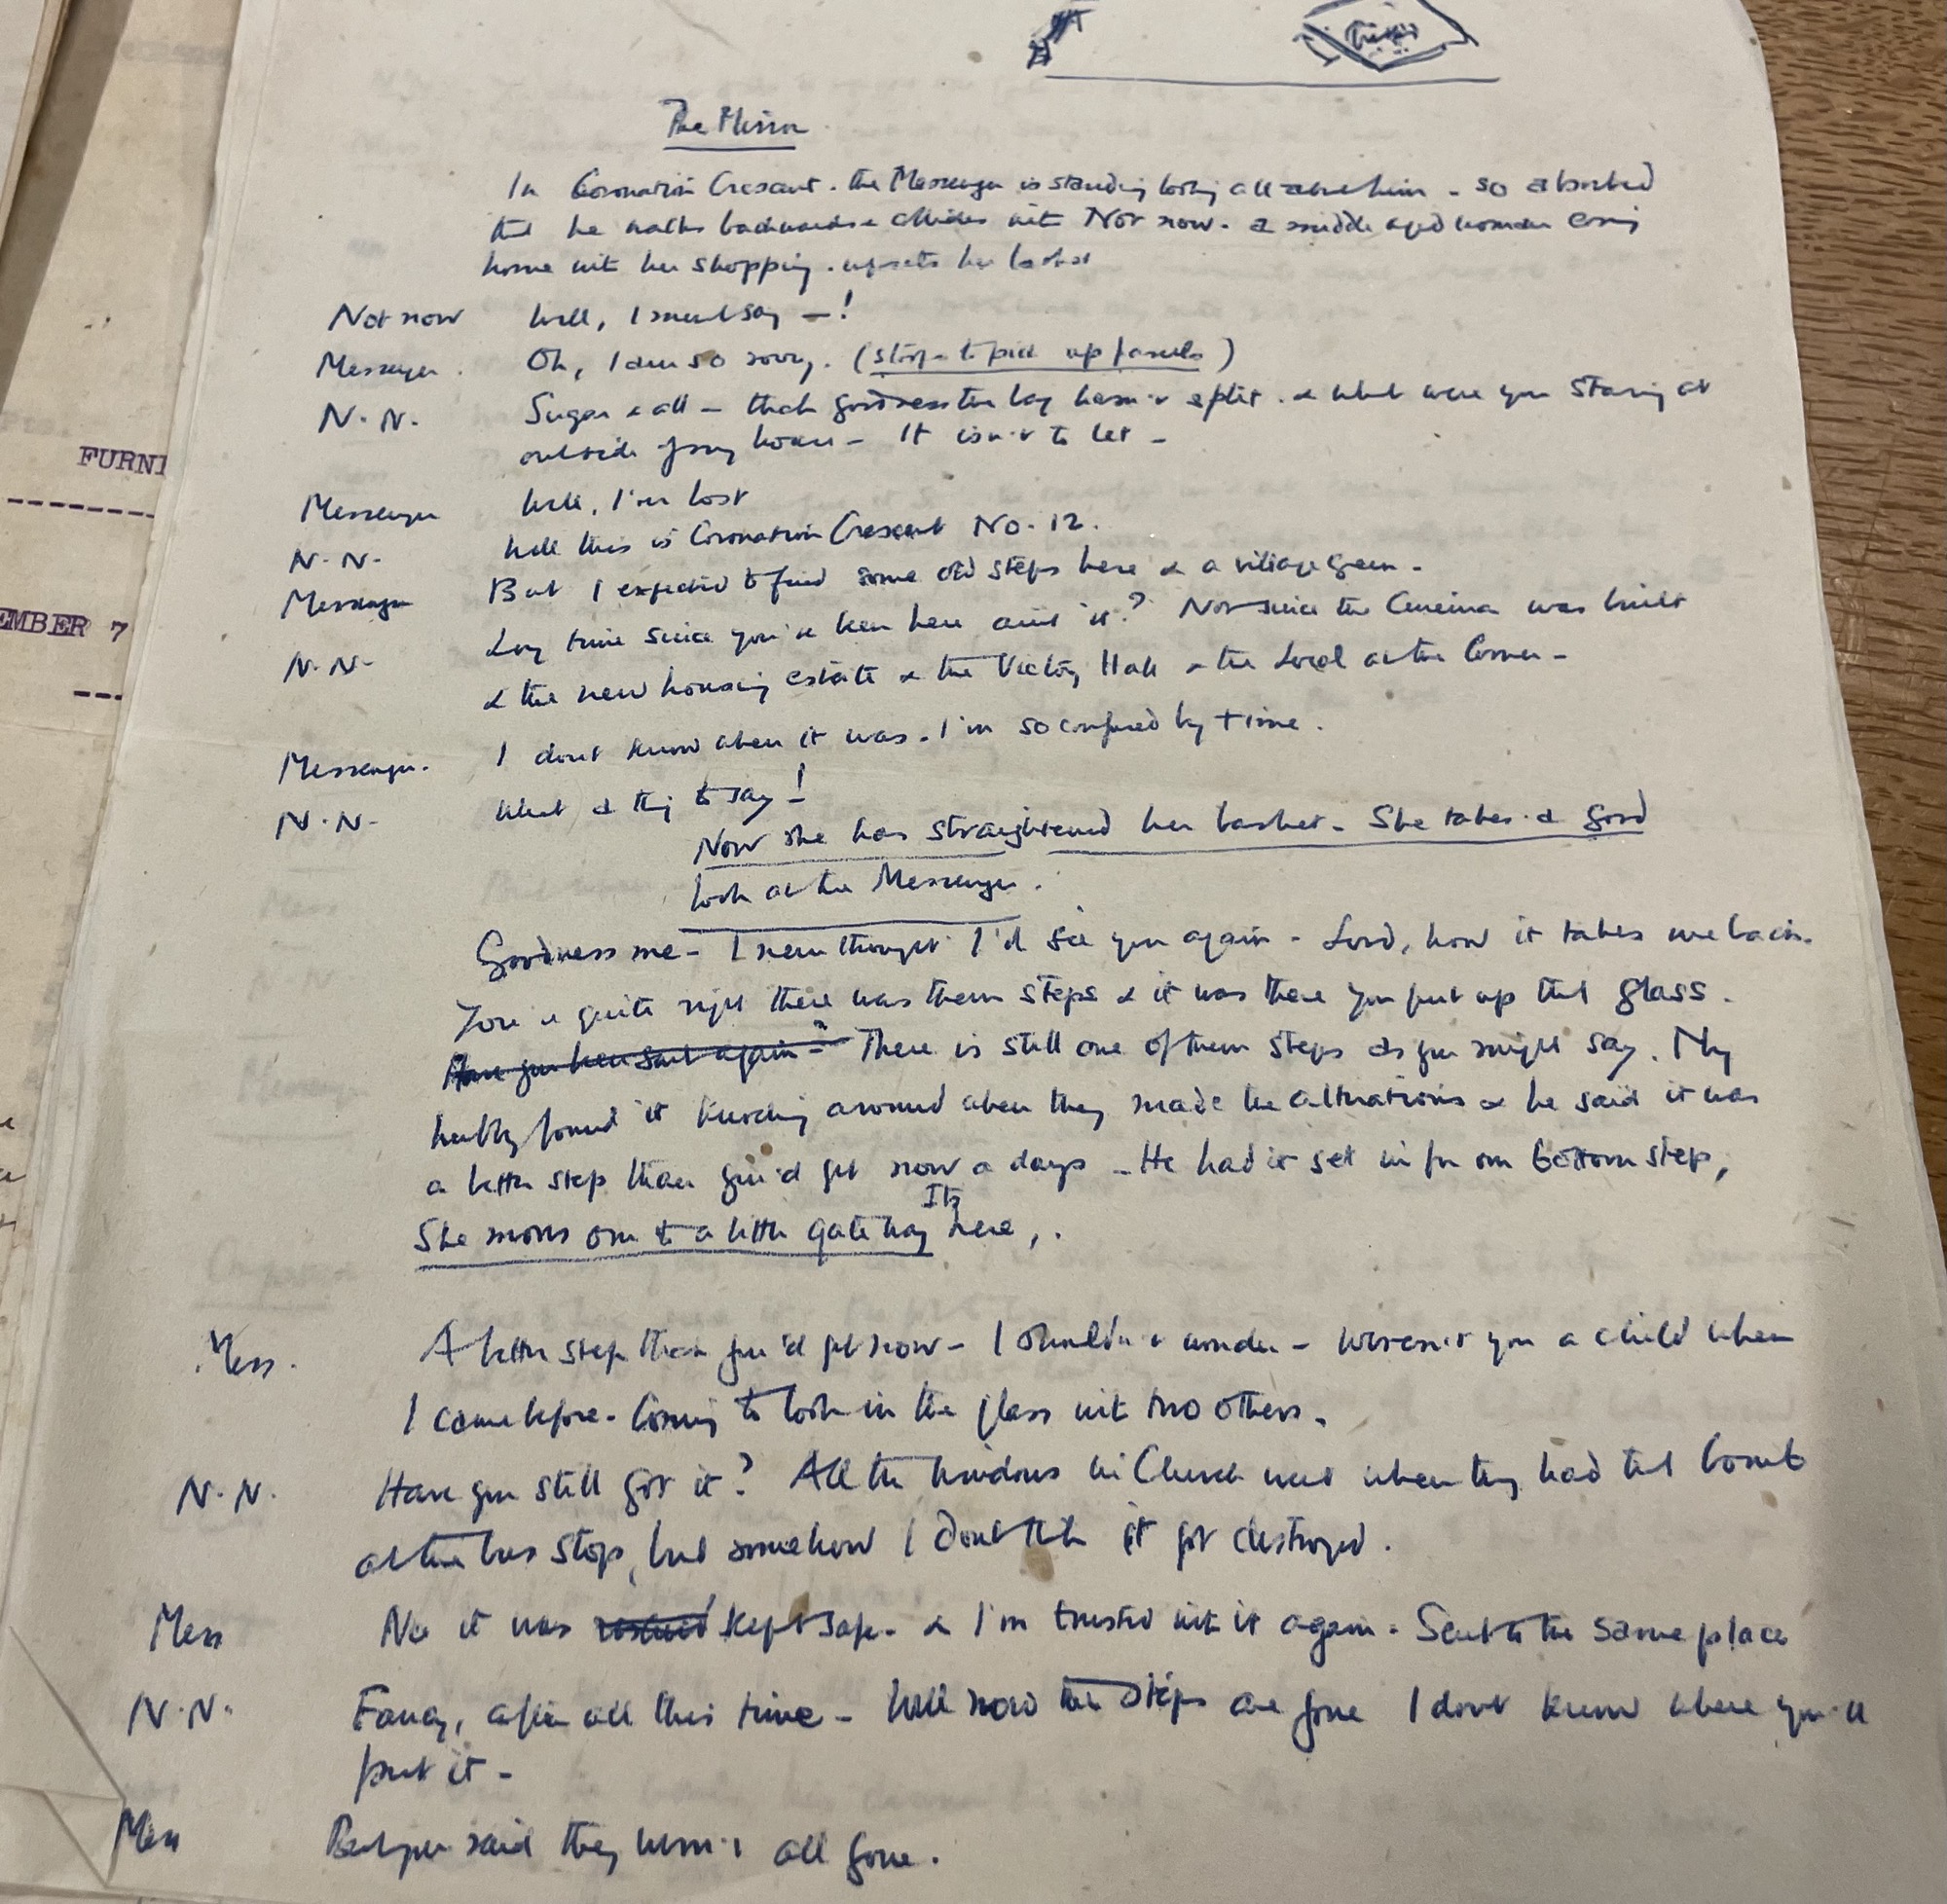 The Mirror
In Coronation Crescent. the Messenger is standing looking all about him - so absorbed
that he walks backwards & collides with Not now. a middle aged woman coming
home with her shopping. upsets her basket
Not now Well, I must say - !
Messenger. Oh, I am so sorry. (stops to pick up parcels)
N. N. Sugar & all - thank goodness the bag hasn't split. & what were you staring at
outside of my house - It isn't to let -
Messenger Well, I'm lost
N. N. Well this is Coronation Crescent No. 12.
Messenger But I expected to find some old steps here & a village green.
N. N. Long time since you've been here ain't it? Not since the Cinema was built
& the new housing estate & the Victory Hall & the Local at the Corner -
Messenger. I dont know when it was. I'm so confused by time.
N. N. What a thing to say!
Now she has straightened her basket. She takes a good
look at the Messenger.
Goodness me - I never thought I'd see you again - Lord, how it takes me back.
You're quite right there was them steps & it was there you put up that glass.
Have you been sent again -? There is still one of them steps as you might say. My
hubby found it knocking around when they made the alterations & he said it was
a better step than you'd get now a days - He had it set in for our bottom step,
She moves over to a little gateway Its here,.
Mess. A better step than you'd get now - I shouldn't wonder - Weren't you a child when
I came before - Coming to look in the glass with two others.
N. N. Have you still got it? All the windows in Church went when they had that bomb
at the bus stop, but somehow I dont think it got destroyed.
Mess No it was rescued kept safe - & I'm trusted with it again. Sent to the same place
N. N. Fancy, after all this time - Well now the steps are gone I dont know where you'll
put it -
Mess But you said they weren't all gone.
FURNI
EMBER 7